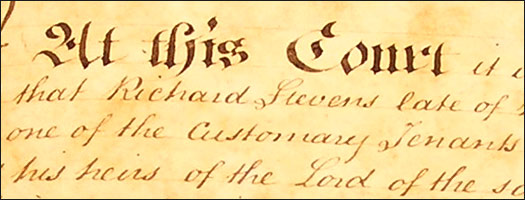 At this Court it
that Richard Stevens late of
one of the Customary Tenants
his heirs of the Lord of the